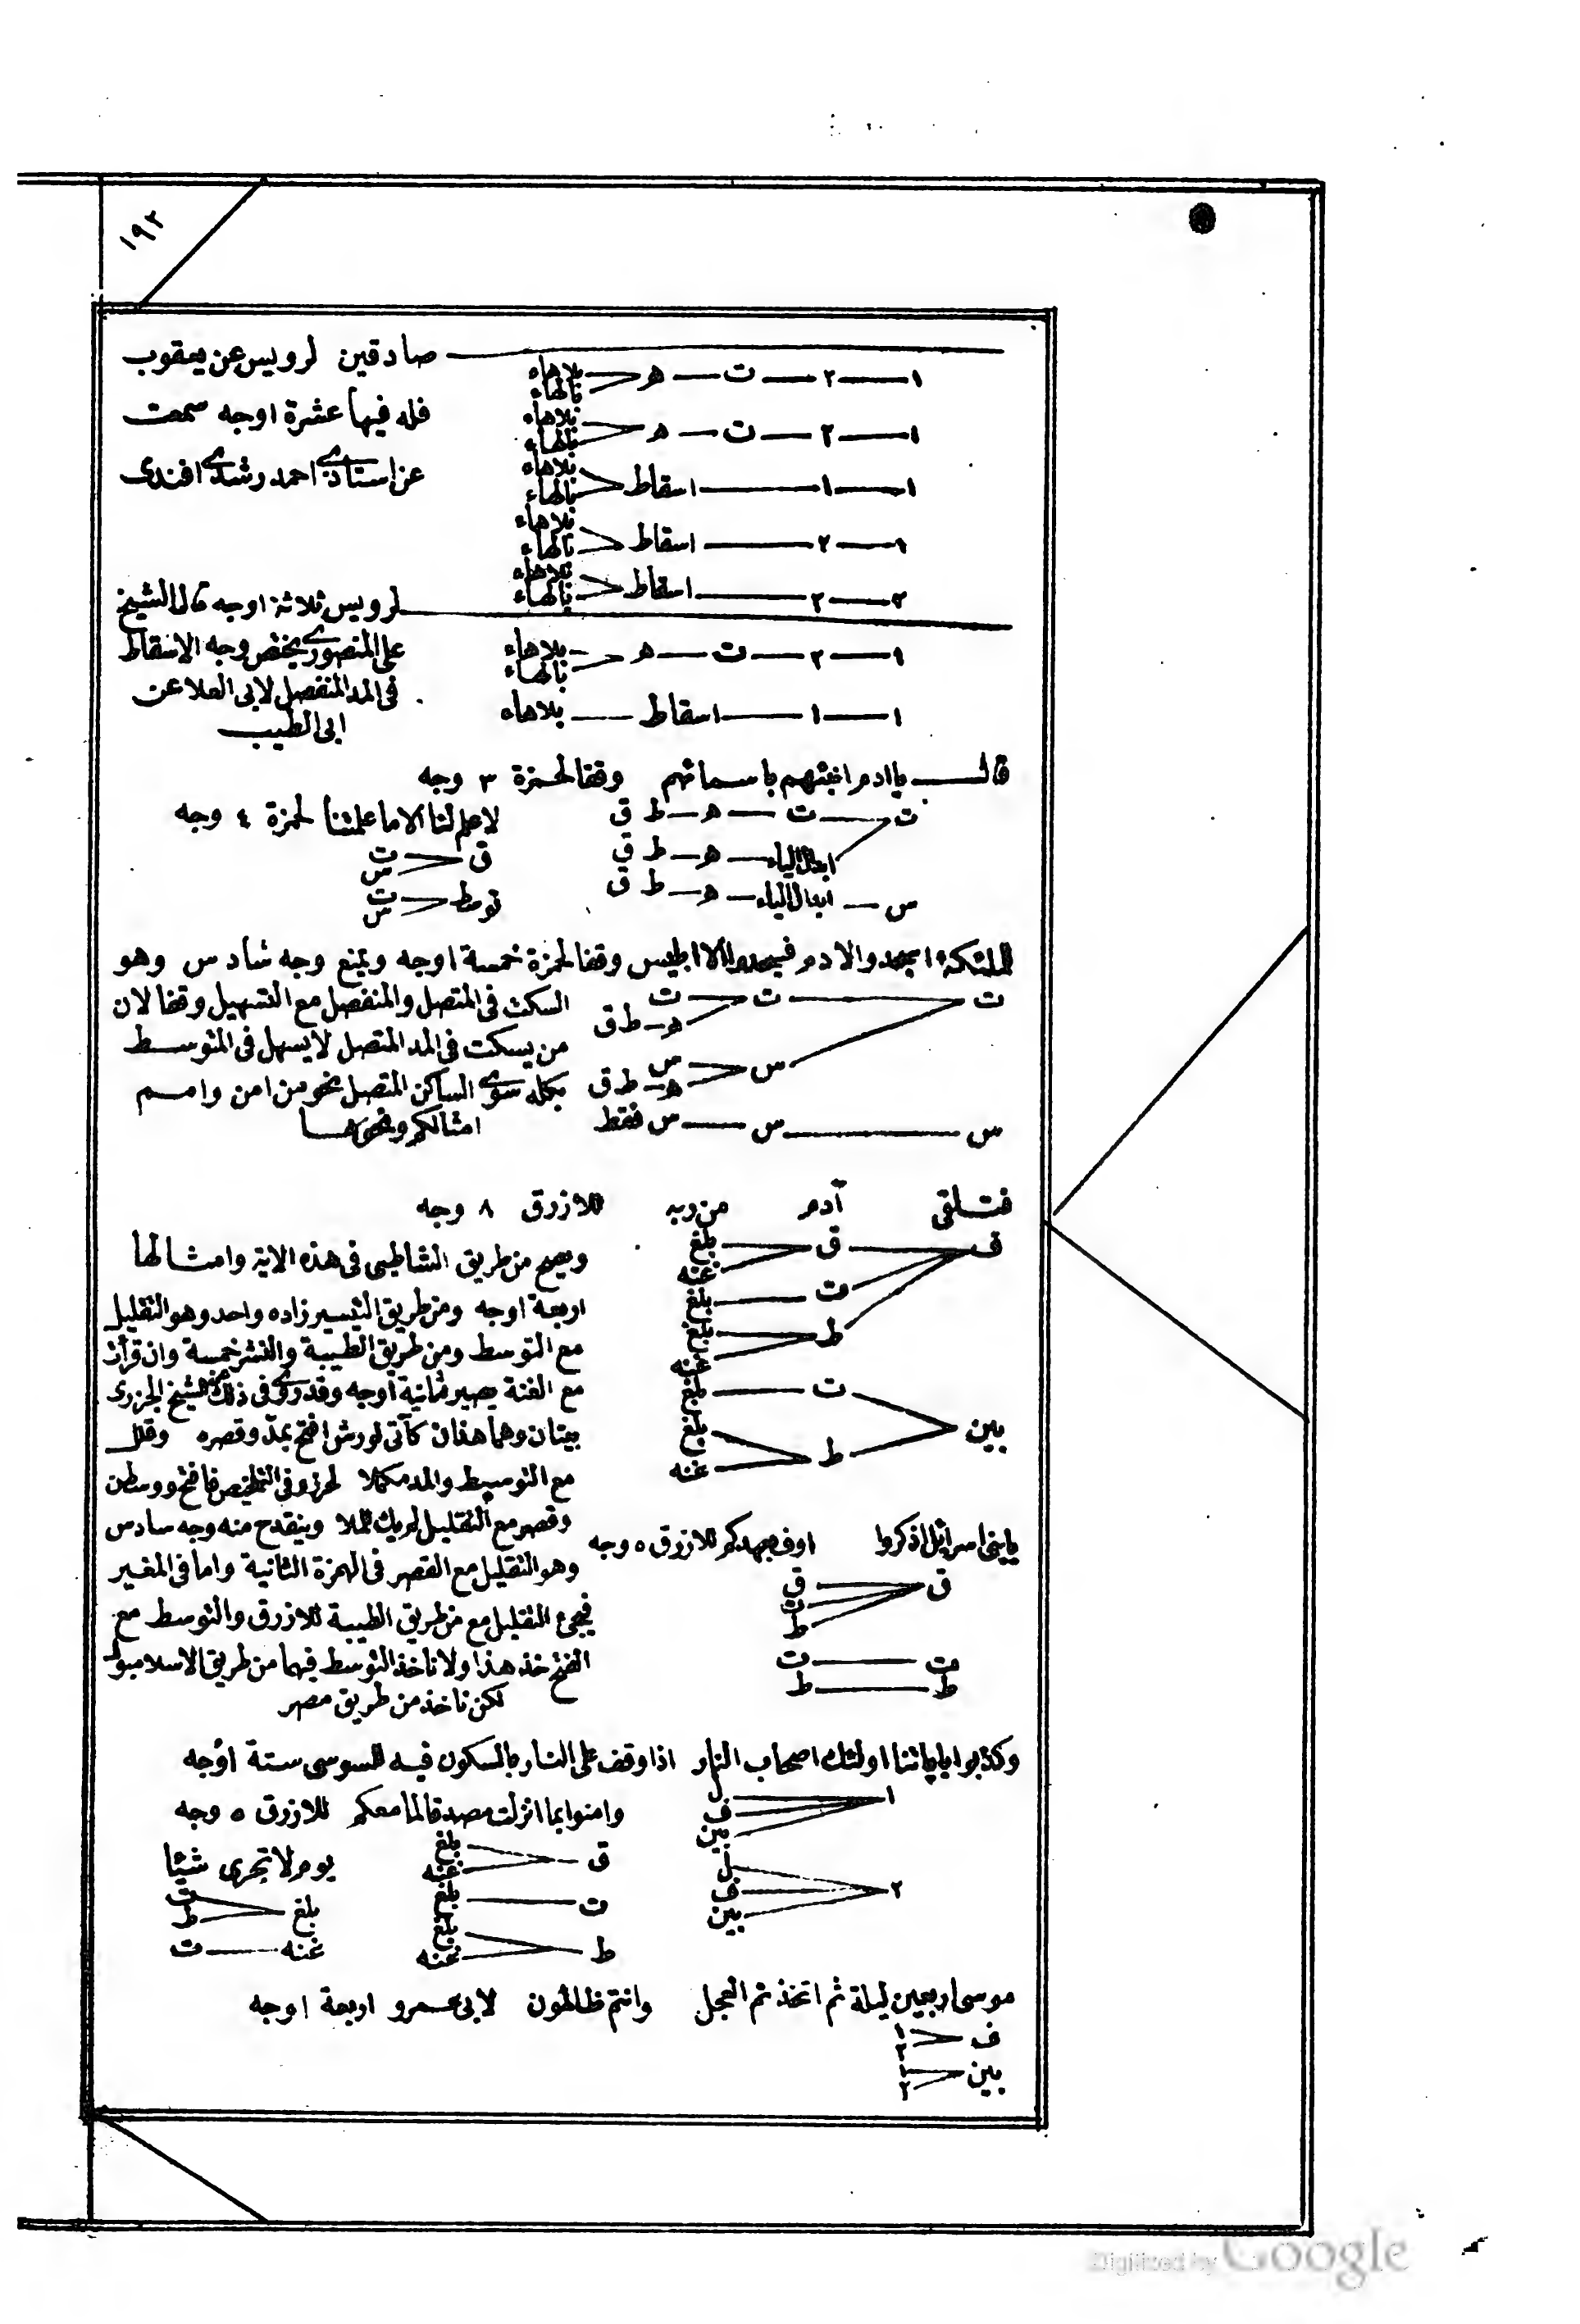 ١٩٢
صادقين لرويس عن يعقوب
فله فيها عشرة اوجه سمعت
عن استاذى احمد رشدى افندى
١ ٢ ت ه بلاهاء بالهاء
١ ٢ ت ه بلاهاء بالهاء
١ ١ اسقاط بلاهاء بالهاء
١ ٢ اسقاط بلاهاء بالهاء
٢ ٢ اسقاط بلاهاء بالهاء
لرويس ثلاثة اوجه قال الشيخ
على المنصورى يختص وجه الاسقاط
فى المد المنفصل لابى العلا عن
ابى الطيب
١ ٢ ت ه بلاهاء بالهاء
١ ١ اسقاط بلاهاء
قال ياادم انبئهم باسمائهم وقفا لحمزة ٣ وجه
ت ت ه ط ق
ابدال الياء ه ط ق
س ابدال الياء ه ط ق
لاعلم لنا الا ما علمتنا لحمزة ٤ وجه
ق ت س
توسط ت س
للملئكة اسجدوا لادم فسجدوا الا ابليس وقفا لحمزة خمسة اوجه ويمنع وجه سادس وهو
السكت فى المتصل والمنفصل مع التسهيل وقفا لان
من يسكت فى المد المتصل لا يسهل فى المتوسط
بكله سوى الساكن المتصل نحو من امن وامم
امثالكم ونحوها
ت ت ت
ه ط ق
س س
ه ط ق
س س س فقط
فتلقى آدم من ربه للازرق ٨ وجه
ف ق بلغ غنه
ت بلغ
ط بلغ غنه
بين ت بلغ
ط بلغ غنه
ويصح من طريق الشاطبى فى هذه الاية وامثالها
اربعة اوجه ومن طريق التيسير زاده واحد وهو التقليل
مع التوسط ومن طريق الطيبة والنشر خمسة وان قرأت
مع الغنة يصير ثمانية أوجه وقد روى فى ذلك عن الشيخ الجزرى
بيتان وهما هذان كآتى لورش افتح بمد وقصره وقلل
مع التوسط والمد مكملا لحرز وفى التلخيص فافتح ووسطن
وقصر مع التقليل لم يك للملا وينقدح منه وجه سادس
وهو التقليل مع القصر فى الهمزة الثانية واما فى المغير
فيجىء التقليل مع من طريق الطيبة للازرق والتوسط مع
الفتح خذ هذا ولا ناخذ التوسط فيهما من طريق الاسلامبول
لكن ناخذ من طريق مصر
يابنى اسرائل اذكروا اوف بعهدكم للازرق ٥ وجه
ق ق ت ط
ت ت
ط ط
وكذبوا باياتنا اولئك اصحاب النار اذا وقف على النار بالسكون فيه للسوسى ستة اوجه
١ ل ف بين
٢ ل ف بين
وامنوا بما انزلت مصدقا لما معكم للازرق ٥ وجه
ق بلغ غنه
ت بلغ
ط بلغ غنه
يوم لا تجزى شيئا
بلغ ت ط
غنه ت
موسى اربعين ليلة ثم اتخذتم العجل وانتم ظالمون لابى عمرو اربعة اوجه
ف ١ ٢
بين ١ ٢
Digitized by Google